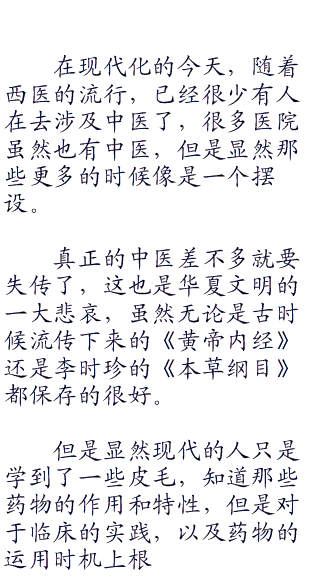 在现代化的今天，随着
西医的流行，已经很少有人
在去涉及中医了，很多医院
虽然也有中医，但是显然那
些更多的时候像是一个摆
设。
真正的中医差不多就要
失传了，这也是华夏文明的
一大悲哀，虽然无论是古时
候流传下来的《黄帝内经》
还是李时珍的《本草纲目》
都保存的很好。
但是显然现代的人只是
学到了一些皮毛，知道那些
药物的作用和特性，但是对
于临床的实践，以及药物的
运用时机上根